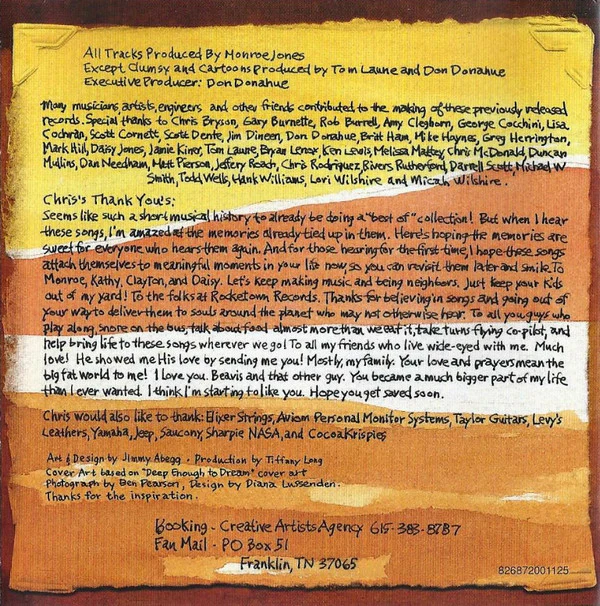 All Tracks Produced By Monroe Jones
Except Clumsy and Cartoons Produced by Tom Laune and Don Donahue
Executive Producer: Don Donahue
Many musicians, artists, engineers and other friends contributed to the making of these previously released
records. Special thanks to Chris Bryson, Gary Burnette, Rob Burrell, Amy Clegborn, George Cocchini, Lisa
Cochran, Scott Cornett, Scott Dente, Jim Dineen, Don Donahue, Britt Ham, Mike Haynes, Greg Herrington,
Mark Hill, Daisy Jones, Jamie Kiner, Tom Laure, Bryan Lenox, Ken Lewis, Melissa Mattey, Chris McDonald, Duncan
Mullins, Dan Needham, Matt Pierson, Jeffery Roach, Chris Rodriguez, Rivers Rutherford, Darrell Scott, Michael W
Smith, Todd Wells, Hank Williams, Lori Wilshire and Micah Wilshire.
Chris's Thank You's:
Seems like such a short musical history to already be doing a "best of" collection! But when I hear
these songs, I'm amazed at the memories already tied up in them. Here's hoping the memories are
sweet for everyone who hears them again. And for those hearing for the first time, I hope these songs
attach themselves to meaningful moments in your life now, so you can revisit them later and smile. To
Monroe, Kathy, Clayton, and Daisy. Let's keep making music and being neighbors. Just keep your kids
out of my yard! To the folks at Rocketown Records. Thanks for believing in songs and going out of
your way to deliver them to souls around the planet who may not otherwise hear. To all you guys who
play along, snore on the bus, talk about food almost more than we eat it, take turns flying co-pilot, and
help bring life to these songs wherever we go! To all my friends who live wide-eyed with me. Much
love! He showed me His love by sending me you! Mostly, my family. Your love and prayers mean the
big fat world to me! I love you. Beavis and that other guy. You became a much bigger part of my life
than I ever wanted. I think I'm starting to like you. Hope you get saved soon.
Chris would also like to thank: Elixer Strings, Aviom Personal Monitor Systems, Taylor Guitars, Levy's
Leathers, Yamaha, Jeep, Saucony, Sharpie NASA, and Cocoa Krispies
Art & Design by Jimmy Abegg · Production by Tiffany Long
Cover Art based on "Deep Enough to Dream" cover art
Photograph by Ben Pearson, Design by Diana Lussenden.
Thanks for the inspiration.
Booking - Creative Artists Agency 615-383-8787
Fan Mail - PO Box 51
Franklin, TN 37065
826872001125